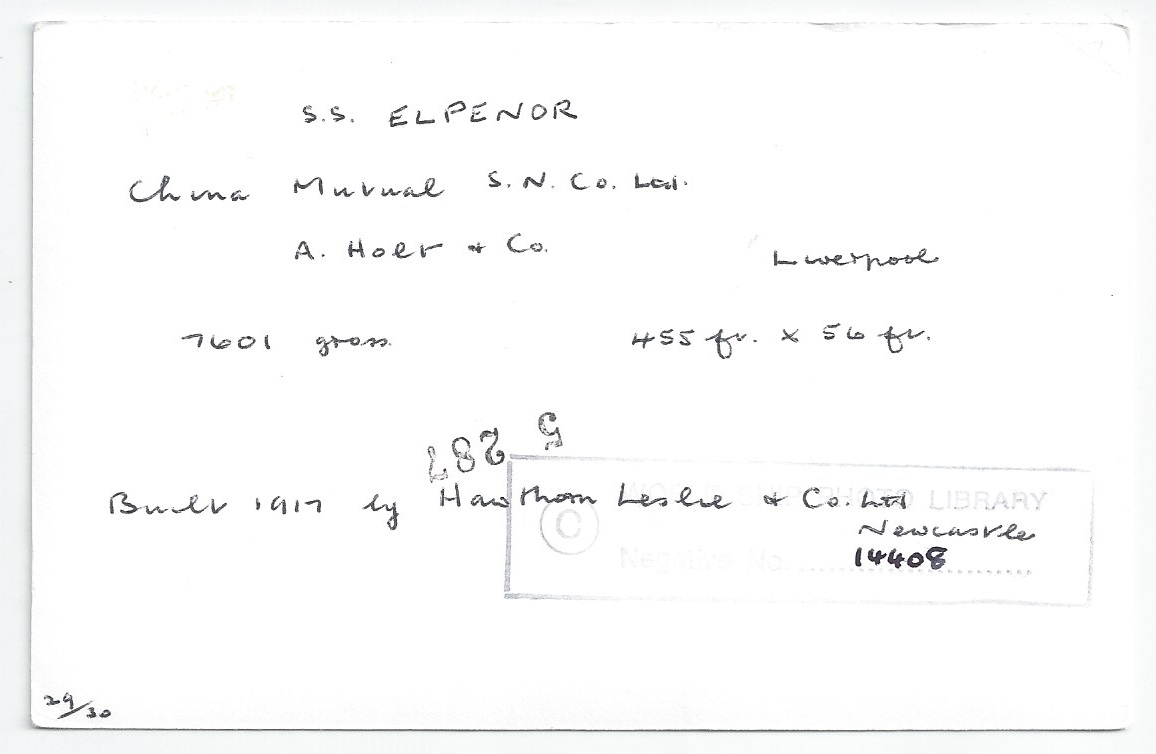 S.S. ELPENOR
China Mutual S.N. Co. Ltd.
A. Holt + Co.
Liverpool
7601 gross. 455 ft. x 56 ft.
5 287
Built 1917 by Hawthorn Leslie + Co. Ltd
Newcastle
© SHIP PHOTO LIBRARY
Negative No. .......... 14408
29/30